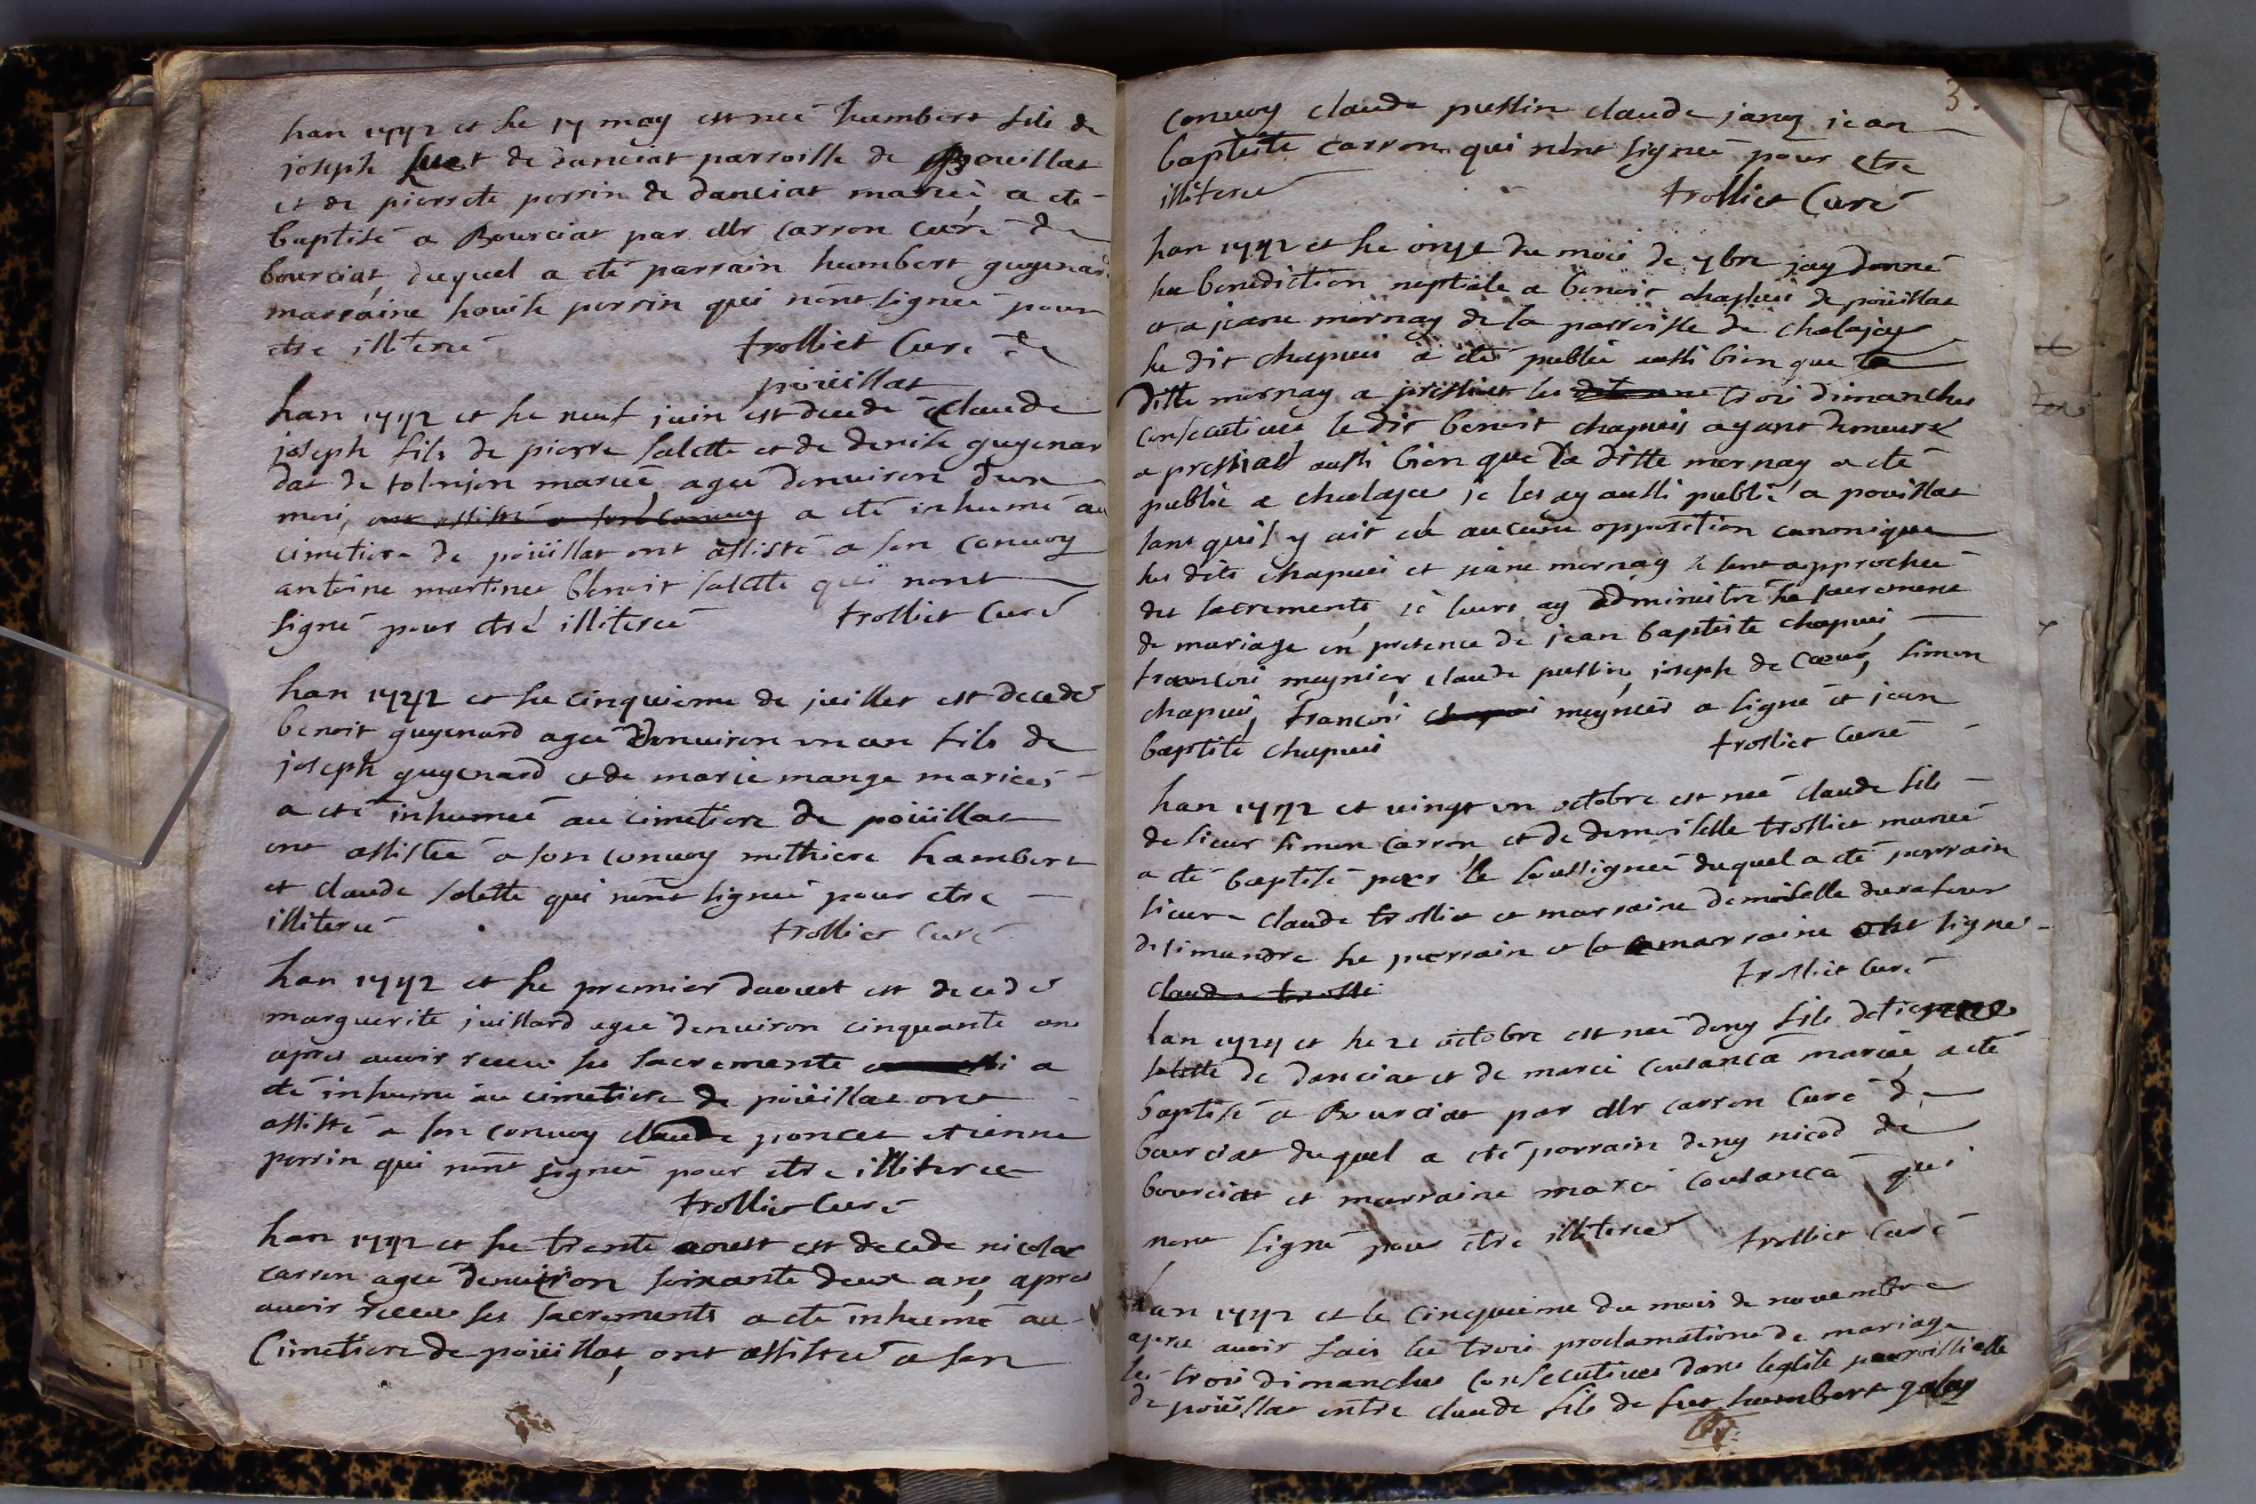 han 1742 et le 17 may est neé humbert fils de
joseph fuet de danciat parroisse de poüillat
et de pierrete perrin de danciat marieé a eté
baptisé a Bourciat par Mr Carron Curé de
bourciat, duquel a eté parrain humbert guyenard
marraine louise perrin qui nont signeé pour
etre illitereé trolliet Curé de
poüillat
han 1742 et le neuf juin est decedé Claude
joseph fils de pierre salette et de denise guyenar
dat de tolonjon marieé, ageé denuiron dun
moi, ont assisté a son conuoy a eté inhumé au
cimetiere de poüillat ont assisté a son conuoy
antoine martinet benoit salette qui nont
signé pour etré illitereé trolliet Curé
han 1742 et le cinquieme de juillet est decedé
benoit guyenard ageé denuiron un an fils de
joseph guyenard et de marie mange marieés
a eté inhumeé au cimetiere de poüillat
ont assisteé a son conuoy humbert
et claude salette qui nont signeé pour etre
illitereé trolliet Curé
han 1742 et le premier daoust est decedé
marguerite juillard ageé denuiron cinquante ans
apres auoir receu les sacrements a
eté inhumé au cimetiere de poüillat ont
assisté a son conuoy claude poncet etienne
perrin qui nont signeé pour etre illitereé
trolliet Curé
han 1742 et le trente aoust est decede nicolas
carron ageé denuiron soixante deux ans, apres
auoir receu les sacrements a eté inhumé au
Cimetiere de poüillat, ont assisteé a son
3.
conuoy claude pussin claude jany jean
baptiste carron qui nont signeé pour etre
illitereé trolliet Curé
han 1742 et le onze du mois de 7bre jay donné
la benediction nuptiale a benoit chapuis de poüillat
et a jeane mornay de la parroisse de
le dit chapuis a eté publié aussi bien que la
ditte mornay a pressiat les trois dimanches
consecutiues le dit benoit chapuis ayant demeuré
a pressiat aussi bien que la ditte mornay a eté
publié a je les ay aussi publié a poüillat
sans quil y ait eû aucune opposition canonique
les dits chapuis et jeane mornay se sont approcheé
des sacrements, je leurs ay administré le sacrement
de mariage en presence de jean baptiste chapuis
francois meynier claude pussin, joseph de Coeur, simon
chapuis, francois chapuis meynier a signé et jean
baptiste chapuis trolliet Curé
han 1742 et uingt un octobre est neé claude fils
de sieur simon carron et de demoiselle trolliet marieé
a eté baptisé par le soussigneé duquel a eté parrain
sieur claude trolliet et marraine demoiselle
de simandre le parrain et la marraine ont signeé
trolliet Curé
claude trolli
lan 1742 et le 21 octobre est neé deny fils
salette de danciat et de marie coutanca marieé, a eté
baptisé a Bourciat par Mr carron Curé de
bourciat duquel a eté parrain deny nicod de
bourciat et marraine marie coutanca qui
nont signé pour etre illitereé trolliet Curé
lan 1742 et le cinquieme du mois de nouembre
apres auoir fait les trois proclamations de mariage
les trois dimanches consecutiues dans leglise parroissialle
de poüillat entre claude fils de fut humbert